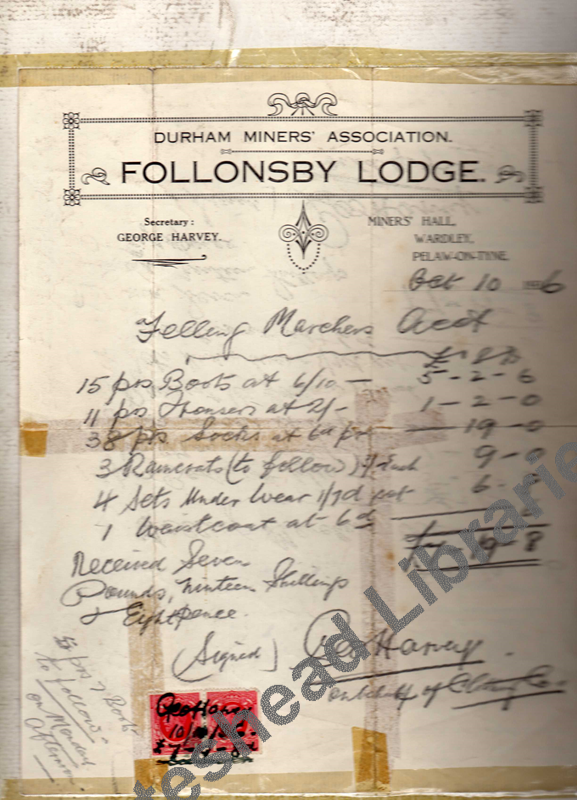 DURHAM MINERS' ASSOCIATION.
FOLLONSBY LODGE.
Secretary:
GEORGE HARVEY.
MINERS' HALL,
WARDLEY,
PELAW-ON-TYNE.
Oct 10 1936
Felling Marchers Acct
£ S D
15 prs Boots at 6/10 — 5-2-6
11 prs Trousers at 2/- 1-2-0
38 prs Socks at 6d pr 19-0
3 Raincoats (to follow) 3/- each 9-0
4 Sets Under Wear 1/7d per 6-
1 Waistcoat at 6d
£7-19-8
Received Seven
Pounds, Nineteen Shillings
& Eightpence.
(Signed) Geo Harvey.
on behalf of Co.
prs 7 Boots
to follow
on Monday
Afternoon
Geo Harvey
10/10/
£7-19-8d
Gateshead Libraries